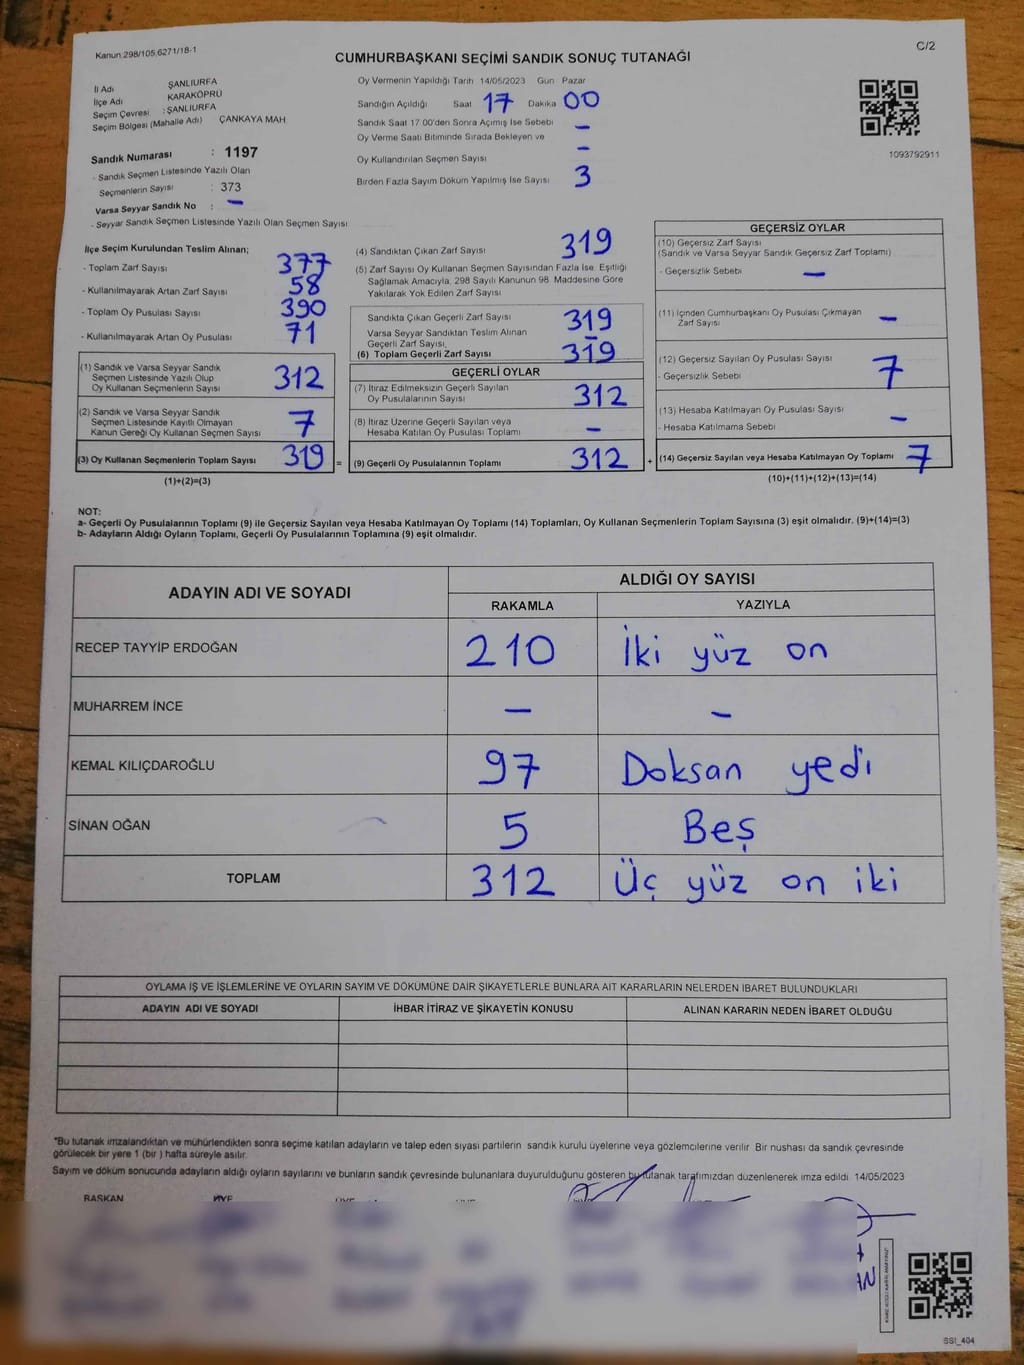 Kanun 298/105,6271/18-1
C/2
CUMHURBAŞKANI SEÇİMİ SANDIK SONUÇ TUTANAĞI
İl Adı ŞANLIURFA
İlçe Adı KARAKÖPRÜ
Seçim Çevresi : ŞANLIURFA
Seçim Bölgesi (Mahalle Adı) ÇANKAYA MAH
Sandık Numarası : 1197
- Sandık Seçmen Listesinde Yazılı Olan
Seçmenlerin Sayısı : 373
Varsa Seyyar Sandık No : –
- Seyyar Sandık Seçmen Listesinde Yazılı Olan Seçmen Sayısı
Oy Vermenin Yapıldığı Tarih 14/05/2023 Gün Pazar
Sandığın Açıldığı Saat 17 Dakika 00
Sandık Saat 17.00'den Sonra Açımış İse Sebebi –
Oy Verme Saati Bitiminde Sırada Bekleyen ve
Oy Kullandırılan Seçmen Sayısı –
Birden Fazla Sayım Döküm Yapılmış İse Sayısı 3
1093792911
İlçe Seçim Kurulundan Teslim Alınan;
- Toplam Zarf Sayısı 377
- Kullanılmayarak Artan Zarf Sayısı 58
- Toplam Oy Pusulası Sayısı 390
- Kullanılmayarak Artan Oy Pusulası 71
(1) Sandık ve Varsa Seyyar Sandık
Seçmen Listesinde Yazılı Olup
Oy Kullanan Seçmenlerin Sayısı 312
(2) Sandık ve Varsa Seyyar Sandık
Seçmen Listesinde Kayıtlı Olmayan
Kanun Gereği Oy Kullanan Seçmen Sayısı 7
(3) Oy Kullanan Seçmenlerin Toplam Sayısı 319
(1)+(2)=(3)
(4) Sandıktan Çıkan Zarf Sayısı 319
(5) Zarf Sayısı Oy Kullanan Seçmen Sayısından Fazla İse, Eşitliği
Sağlamak Amacıyla, 298 Sayılı Kanunun 98. Maddesine Göre
Yakılarak Yok Edilen Zarf Sayısı
Sandıkta Çıkan Geçerli Zarf Sayısı 319
Varsa Seyyar Sandıktan Teslim Alınan
Geçerli Zarf Sayısı, –
(6) Toplam Geçerli Zarf Sayısı 319
GEÇERLİ OYLAR
(7) İtiraz Edilmeksizin Geçerli Sayılan
Oy Pusulalarının Sayısı 312
(8) İtiraz Üzerine Geçerli Sayılan veya
Hesaba Katılan Oy Pusulası Toplamı –
= (9) Geçerli Oy Pusulalarının Toplamı 312
GEÇERSİZ OYLAR
(10) Geçersiz Zarf Sayısı
(Sandık ve Varsa Seyyar Sandık Geçersiz Zarf Toplamı)
- Geçersizlik Sebebi –
(11) İçinden Cumhurbaşkanı Oy Pusulası Çıkmayan
Zarf Sayısı –
(12) Geçersiz Sayılan Oy Pusulası Sayısı
- Geçersizlik Sebebi 7
(13) Hesaba Katılmayan Oy Pusulası Sayısı
- Hesaba Katılmama Sebebi –
+ (14) Geçersiz Sayılan veya Hesaba Katılmayan Oy Toplamı 7
(10)+(11)+(12)+(13)=(14)
NOT:
a- Geçerli Oy Pusulalarının Toplamı (9) ile Geçersiz Sayılan veya Hesaba Katılmayan Oy Toplamı (14) Toplamları, Oy Kullanan Seçmenlerin Toplam Sayısına (3) eşit olmalıdır. (9)+(14)=(3)
b- Adayların Aldığı Oyların Toplamı, Geçerli Oy Pusulalarının Toplamına (9) eşit olmalıdır.
ADAYIN ADI VE SOYADI
ALDIĞI OY SAYISI
RAKAMLA YAZIYLA
RECEP TAYYİP ERDOĞAN 210 İki yüz on
MUHARREM İNCE – –
KEMAL KILIÇDAROĞLU 97 Doksan yedi
SİNAN OĞAN 5 Beş
TOPLAM 312 Üç yüz on iki
OYLAMA İŞ VE İŞLEMLERİNE VE OYLARIN SAYIM VE DÖKÜMÜNE DAİR ŞİKAYETLERLE BUNLARA AİT KARARLARIN NELERDEN İBARET BULUNDUKLARI
ADAYIN ADI VE SOYADI İHBAR İTİRAZ VE ŞİKAYETİN KONUSU ALINAN KARARIN NEDEN İBARET OLDUĞU
*Bu tutanak imzalandıktan ve mühürlendikten sonra seçime katılan adayların ve talep eden siyasi partilerin sandık kurulu üyelerine veya gözlemcilerine verilir. Bir nushası da sandık çevresinde
görülecek bir yere 1 (bir ) hafta süreyle asılır.
Sayım ve döküm sonucunda adayların aldığı oyların sayılarını ve bunların sandık çevresinde bulunanlara duyurulduğunu gösteren bu tutanak tarafımızdan düzenlenerek imza edildi. 14/05/2023
BAŞKAN ÜYE ÜYE ÜYE
SSİ_404